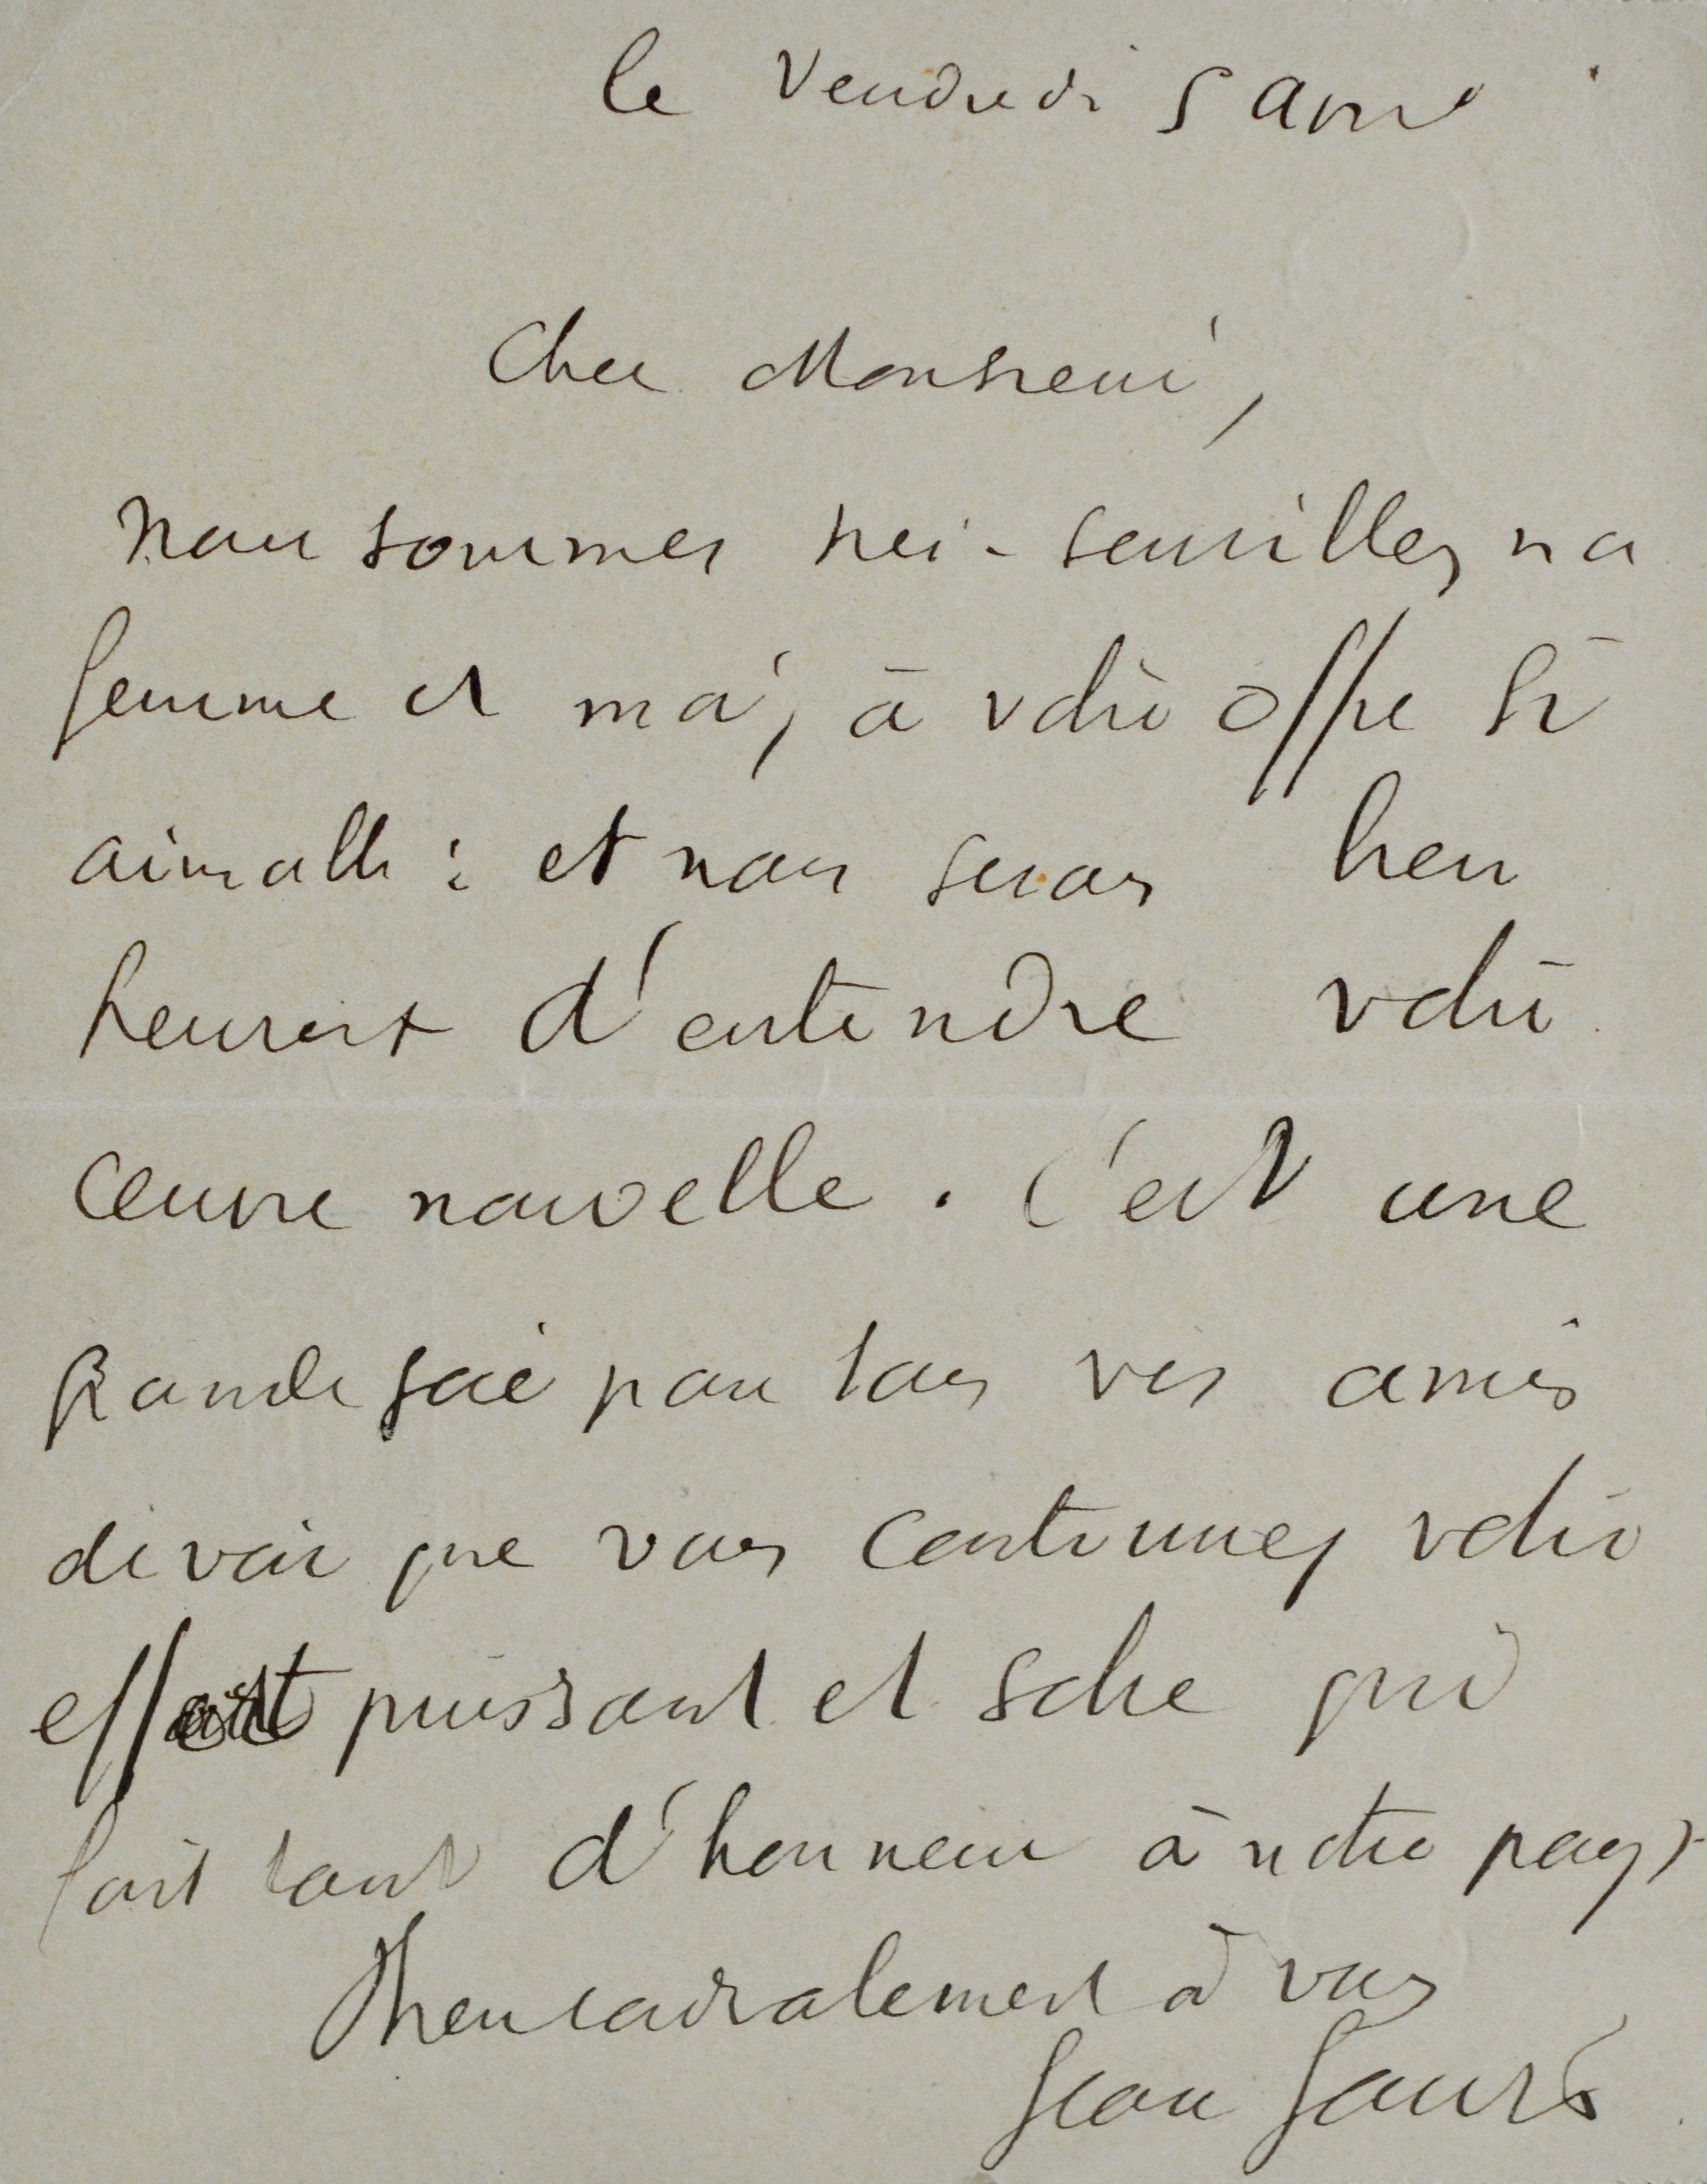 le Vendredi 5 avril
Cher Monsieur,
Nous sommes très-sensibles, ma
femme et moi, à votre offre si
aimable : et nous serons bien
heureux d'entendre votre
œuvre nouvelle. C'est une
grande joie pour tous vos amis
de voir que vous continuez votre
effort puissant et sobre qui
fait tant d'honneur à notre pays.
Bien cordialement à vous
Jean Jaurès